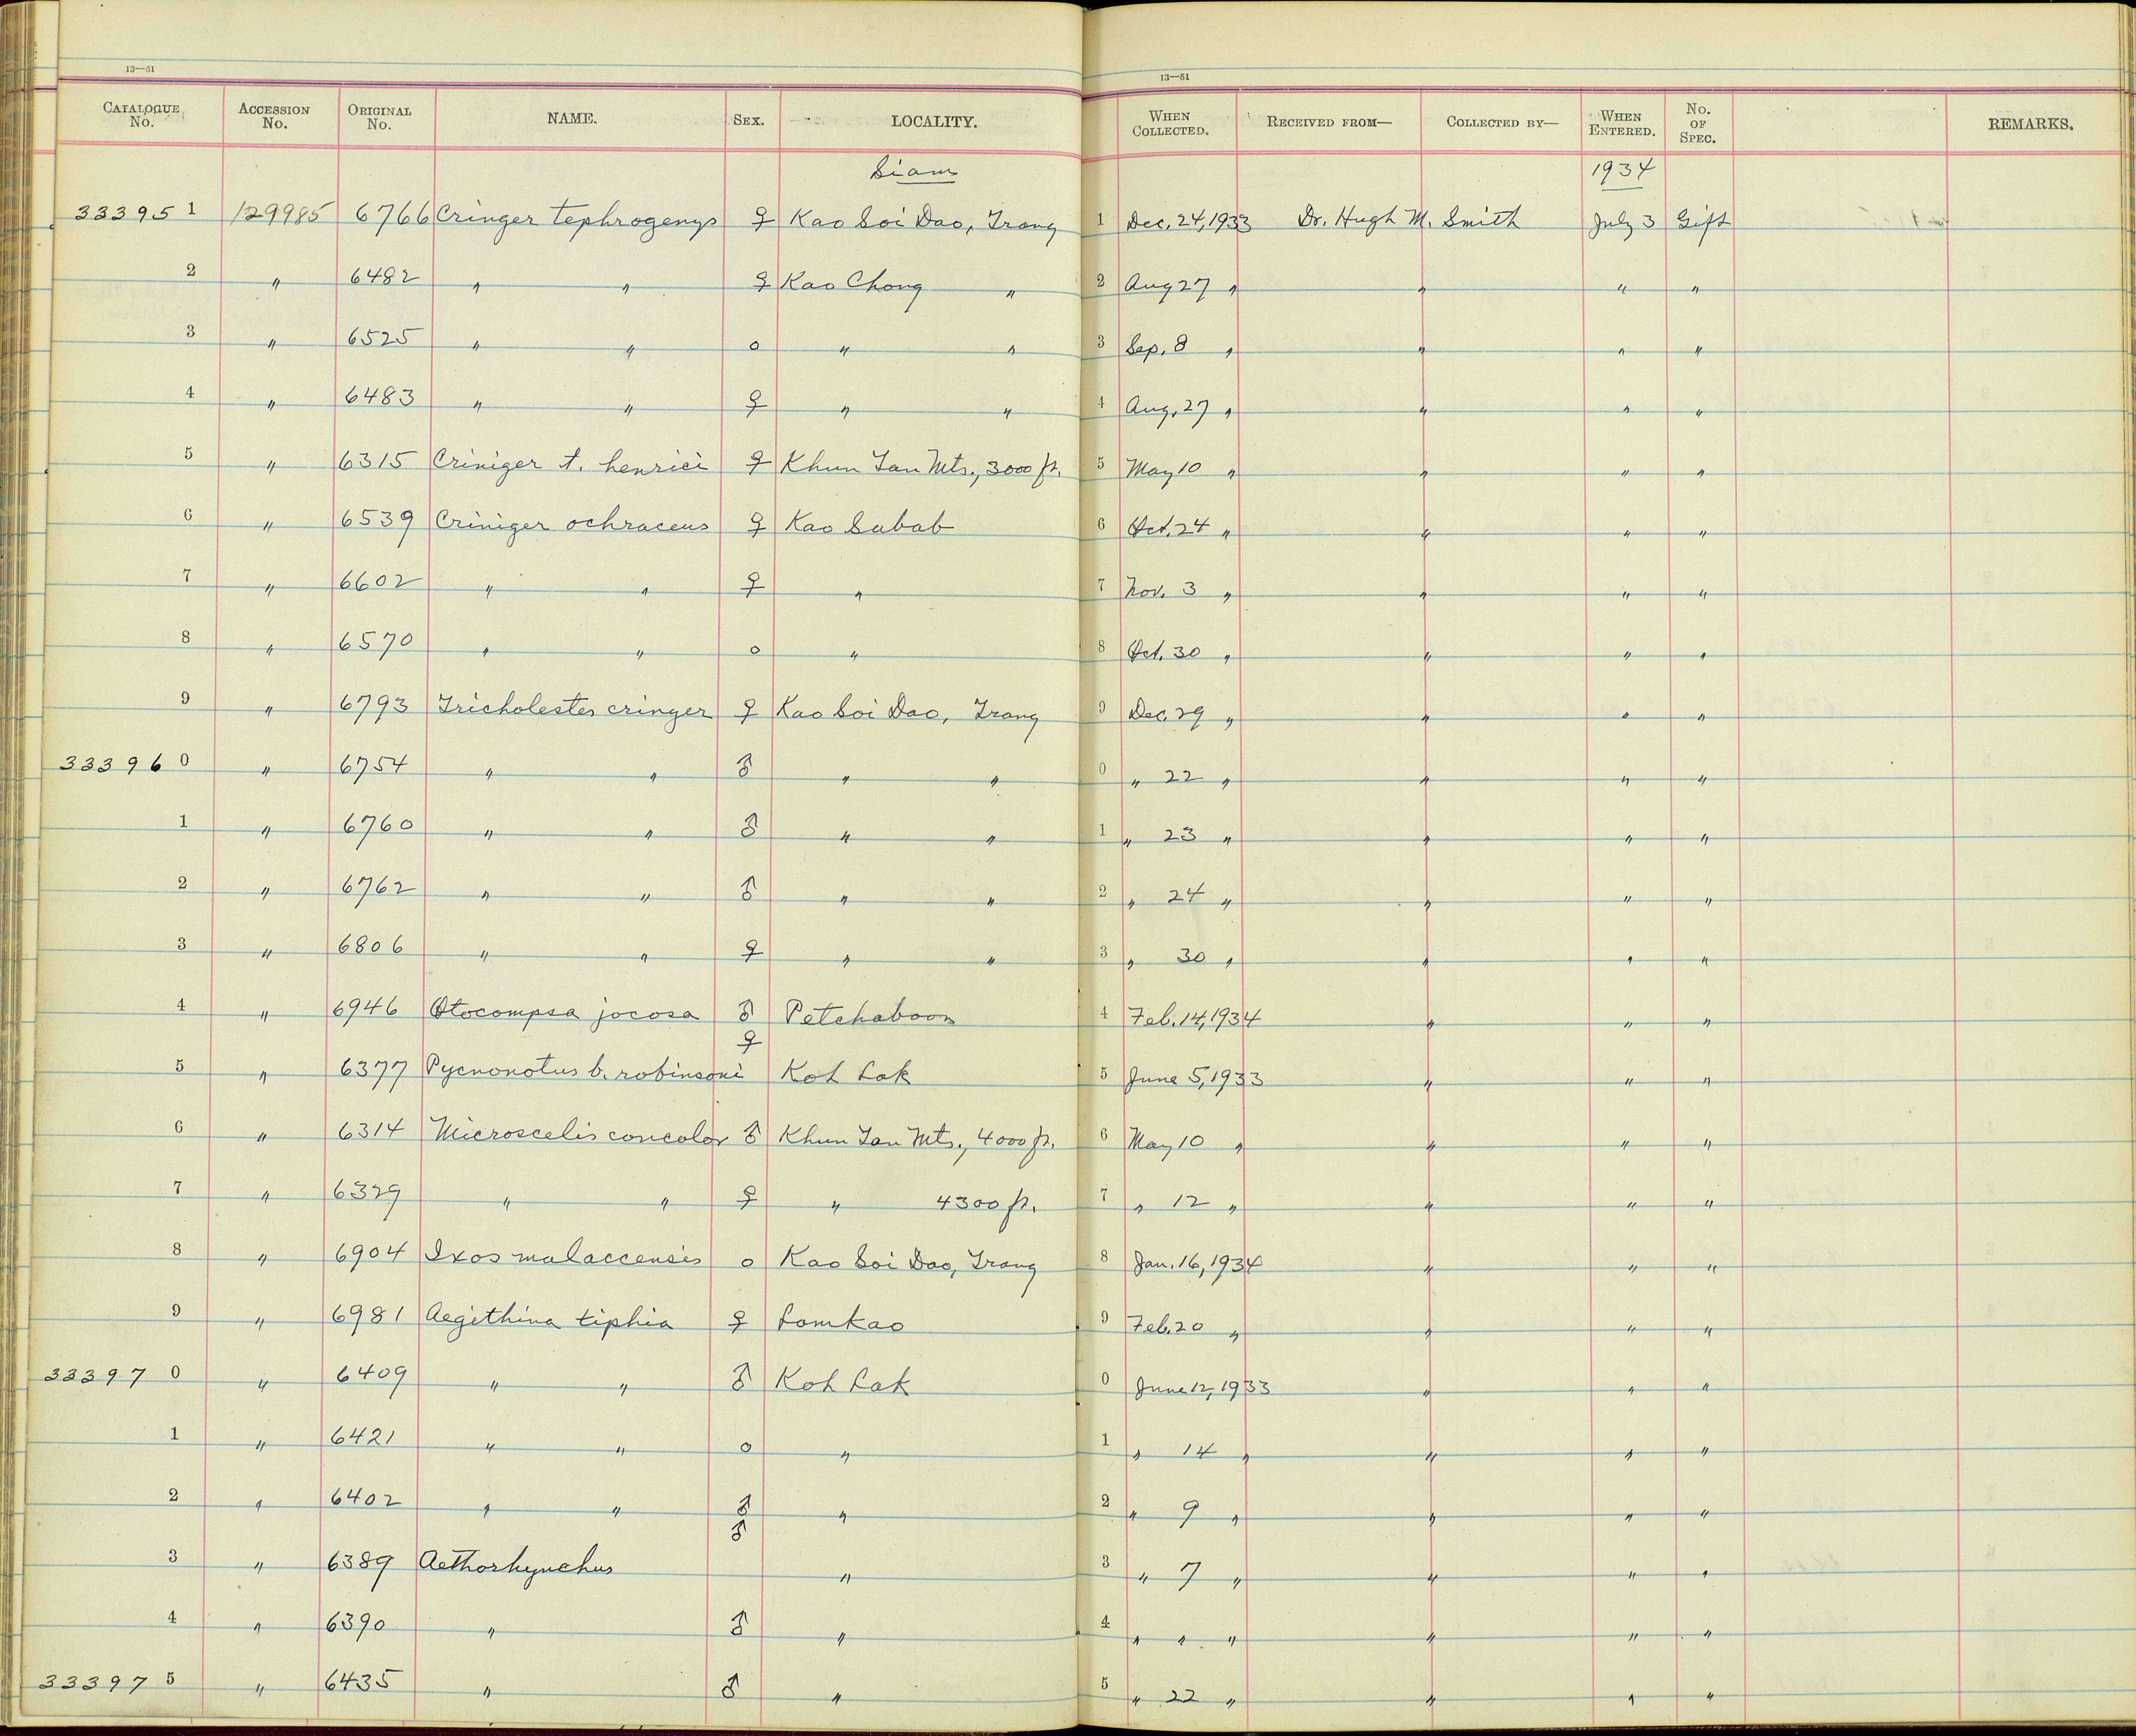 13—51 13—51
CATALOGUE No. ACCESSION No. ORIGINAL No. NAME. SEX. LOCALITY. WHEN COLLECTED. RECEIVED FROM— COLLECTED BY— WHEN ENTERED. No. OF SPEC. REMARKS.
Siam 1934
333951 129985 6766 Cringer tephrogenys ♀ Kao Soi Dao, Trang 1 Dec. 24, 1933 Dr. Hugh M. Smith July 3 Gift
2 " 6482 " " ♀ Kao Chong " 2 Aug 27 " " " "
3 " 6525 " " o " " 3 Sep. 8 " " " "
4 " 6483 " " ♀ " " 4 Aug. 27 " " " "
5 " 6315 Criniger t. henrici ♀ Khun Tan Mts., 3000 ft. 5 May 10 " " " "
6 " 6539 Criniger ochraceus ♀ Kao Sabab 6 Oct. 24 " " " "
7 " 6602 " " ♀ " 7 Nov. 3 " " " "
8 " 6570 " " o " 8 Oct. 30 " " " "
9 " 6793 Tricholestes cringer ♀ Kao Soi Dao, Trang 9 Dec. 29 " " " "
333960 " 6754 " " ♂ " " 0 " 22 " " " "
1 " 6760 " " ♂ " " 1 " 23 " " " "
2 " 6762 " " ♂ " " 2 " 24 " " " "
3 " 6806 " " ♀ " " 3 " 30 " " " "
4 " 6946 Otocompsa jocosa ♂ Petchaboon 4 Feb. 14, 1934 " " "
5 " 6377 Pycnonotus b. robinsoni ♀ Koh Lak 5 June 5, 1933 " " "
6 " 6314 Microscelis concolor ♂ Khun Tan Mts., 4000 ft. 6 May 10 " " " "
7 " 6329 " " ♀ " 4300 ft. 7 " 12 " " " "
8 " 6904 Ixos malaccensis o Kao Soi Dao, Trang 8 Jan. 16, 1934 " " "
9 " 6981 Aegithina tiphia ♀ Lomkao 9 Feb. 20 " " " "
333970 " 6409 " " ♂ Koh Lak 0 June 12, 1933 " " "
1 " 6421 " " o " 1 " 14 " " " "
2 " 6402 " " ♂ " 2 " 9 " " " "
3 " 6389 Aethorhynchus ♂ " 3 " 7 " " " "
4 " 6390 " ♂ " 4 " " " " " "
333975 " 6435 " ♂ " 5 " 22 " " " "